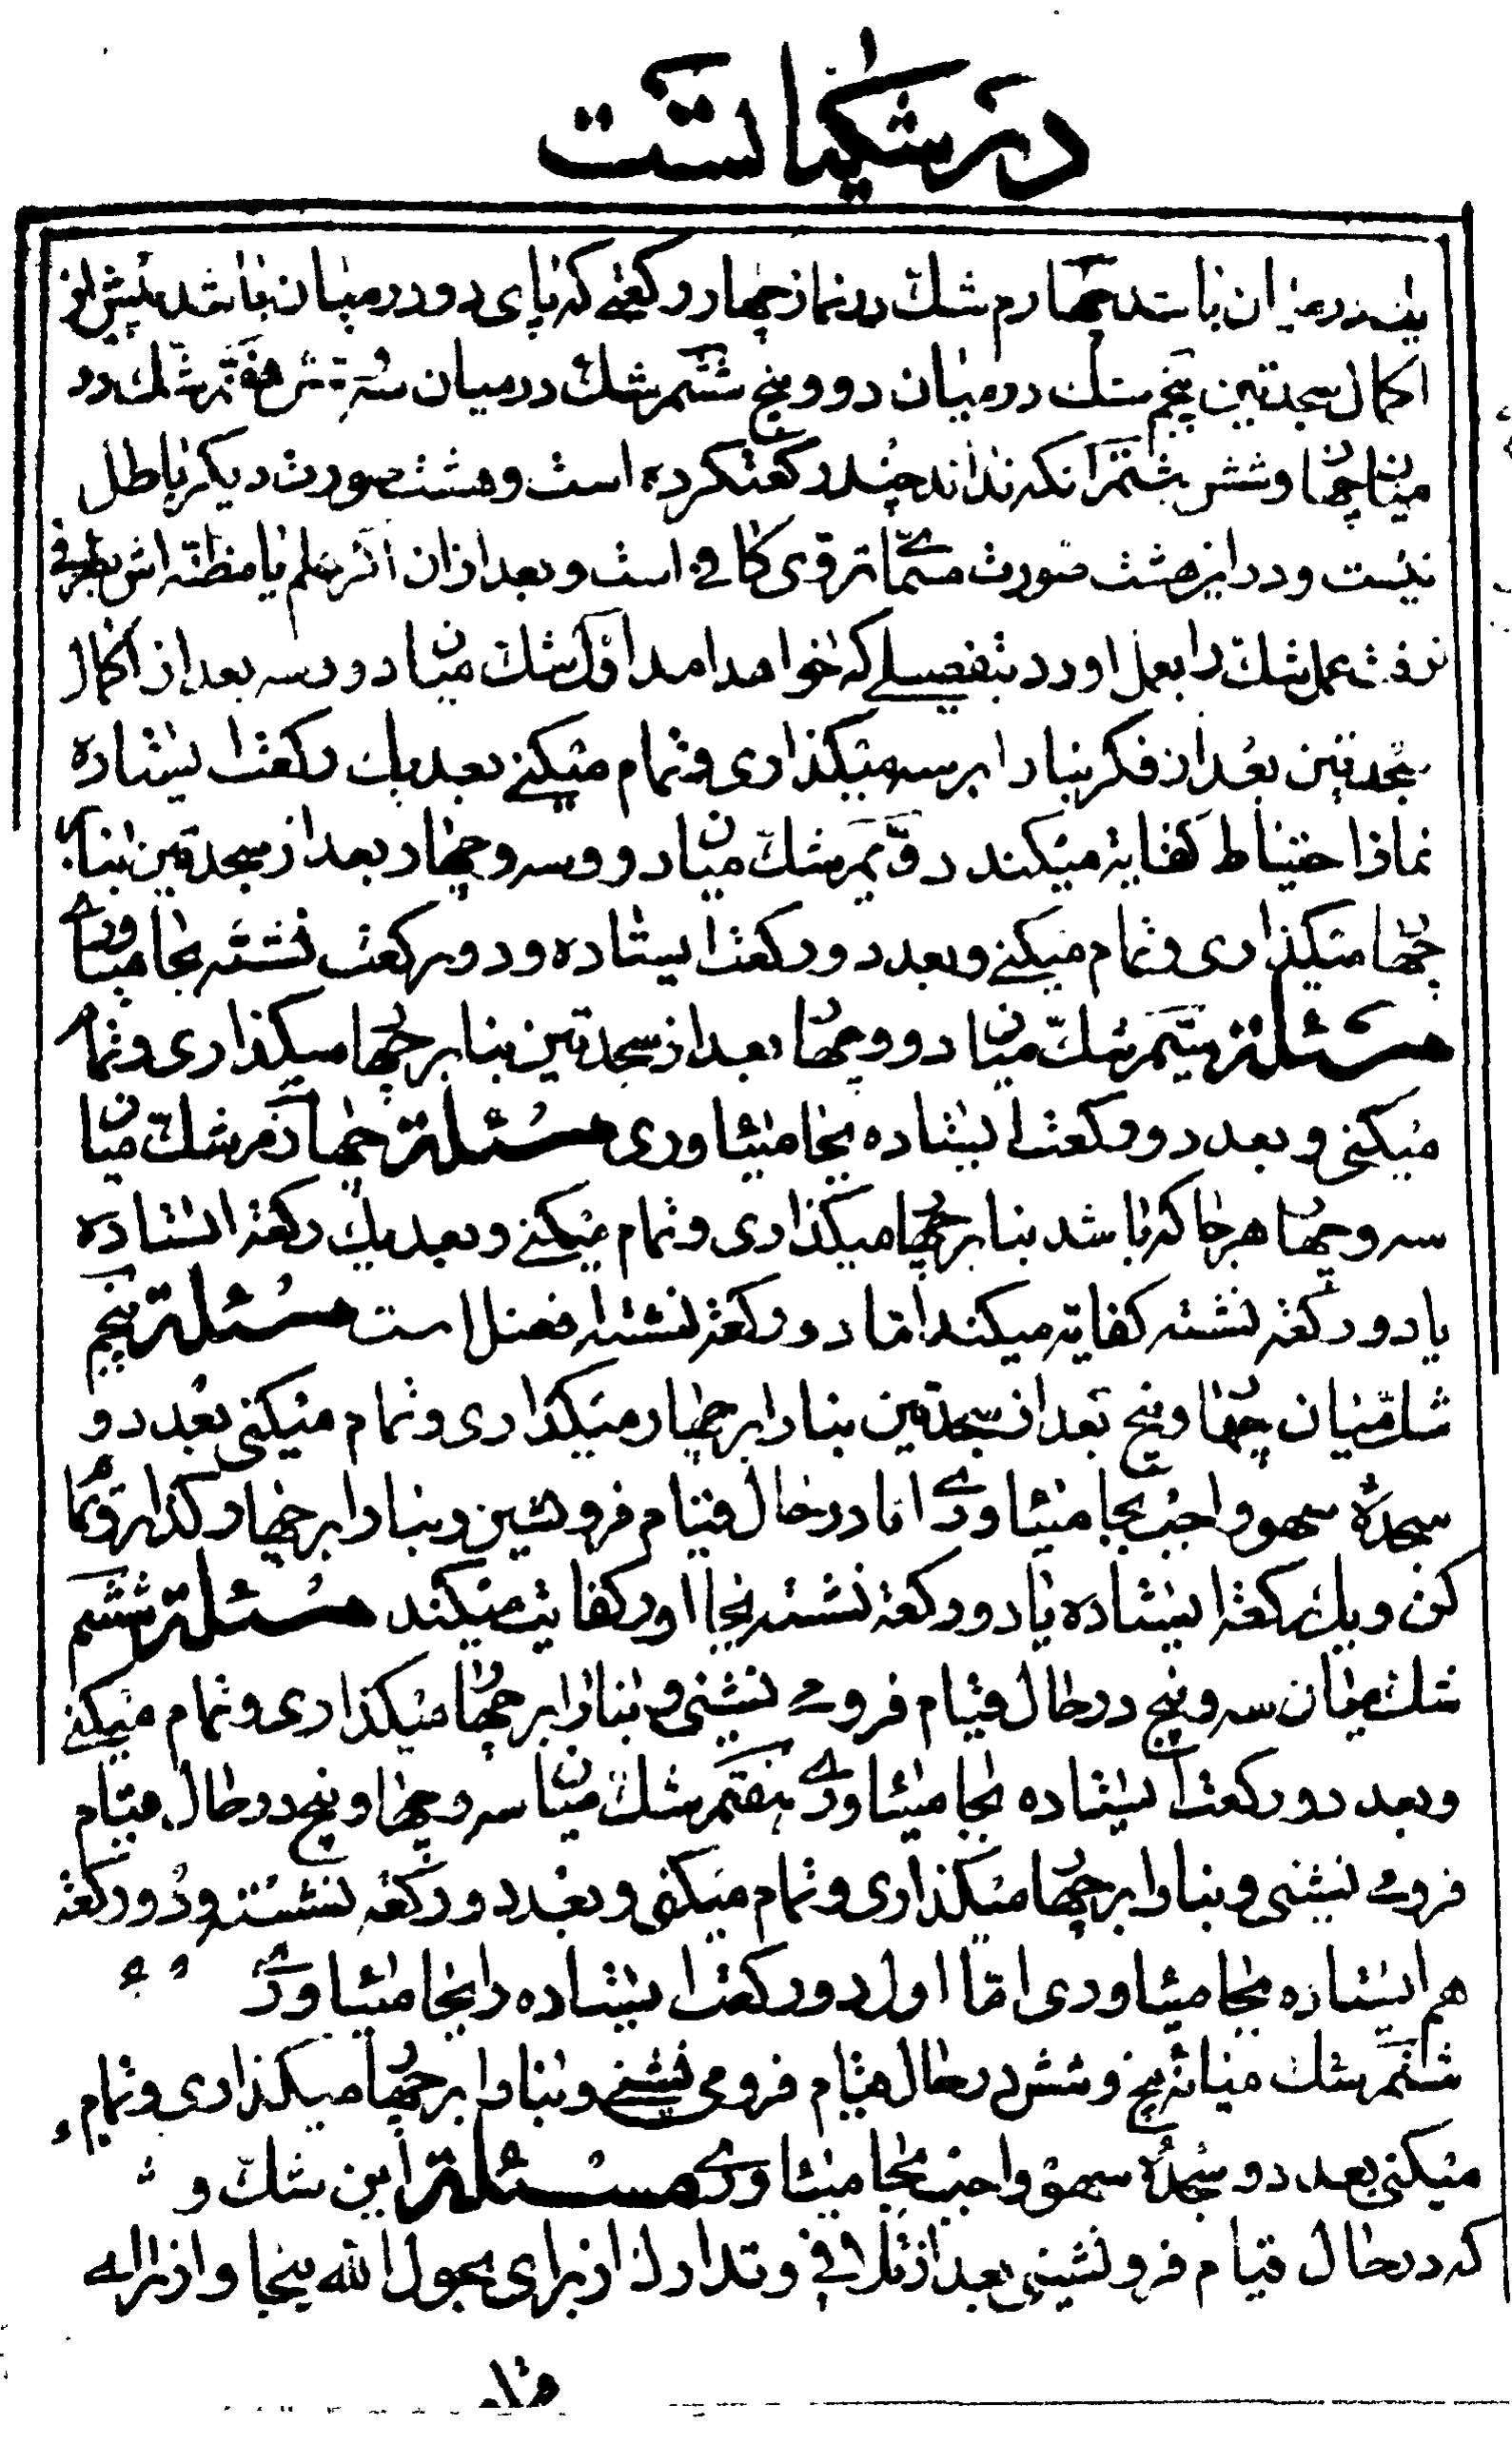 در شکیات است
یک در میان باشد چهارم شك در نماز چهار رکعتی که پای دو در میان باشد پیش از
اکمال سجدتین پنجم شك در میان دو و پنج ششم شك در میان سه و شش هفتم شك در
میان چهار و شش هشتم آنکه نداند چند رکعت کرده است و هشت صورت دیگر باطل
نیست و در این هشت صورت مسمّا تروّی کافی است و بعد از آن اگر علم یا مظنّه اش بطرفی
نرفت عمل شك را بعمل آورد بتفصیلی که خواهد آمد اوّل شك میان دو و سه بعد از اکمال
سجدتین بعد از فکر بنا را بر سه میگذاری و تمام میکنی بعد یك رکعت ایستاده
نماز احتیاط کفایة میکند دوّیم شك میان دو و سه و چهار بعد از سجدتین بنا بر
چهار میگذاری و تمام میکنی و بعد دو رکعت ایستاده و دو رکعت نشسته بجا میاوری
مسئلة سیّم شك میان دو و چهار بعد از سجدتین بنا بر چهار میگذاری و تمام
میکنی و بعد دو رکعت ایستاده بجا میاوری مسئلة چهارم شك میان
سه و چهار هر جا که باشد بنا بر چهار میگذاری و تمام میکنی و بعد یك رکعة ایستاده
یا دو رکعة نشسته کفایة میکند امّا دو رکعة نشسته افضل است مسئلة پنجم
شك میان چهار و پنج بعد از سجدتین بنا را بر چهار میگذاری و تمام میکنی بعد دو
سجدۀ سهو واجب بجا میاوری امّا در حال قیام فرو نشین و بنا را بر چهار گذار و تمام
کن و یك رکعة ایستاده یا دو رکعة نشسته بجا اور کفایت میکند مسئلة ششم
شك میان سه و پنج در حال قیام فرو می نشینی و بنا را بر چهار میگذاری و تمام میکنی
و بعد دو رکعت ایستاده بجا میاوری هفتم شك میان سه و چهار و پنج در حال قیام
فرو می نشینی و بنا را بر چهار میگذاری و تمام میکنی و بعد دو رکعة نشسته و دو رکعة
هم ایستاده بجا میاوری امّا اول دو رکعت ایستاده را بجا میاوری
هشتم شك میانۀ پنج و شش در حال قیام فرو می نشینی و بنا را بر چهار میگذاری و تمام
میکنی بعد دو سجدۀ سهو واجب بجا میاوری مسئلة این شك و
که در حال قیام فرو نشینی بعد از تلافی و تدارك از برای بحول الله بیجا و از برای